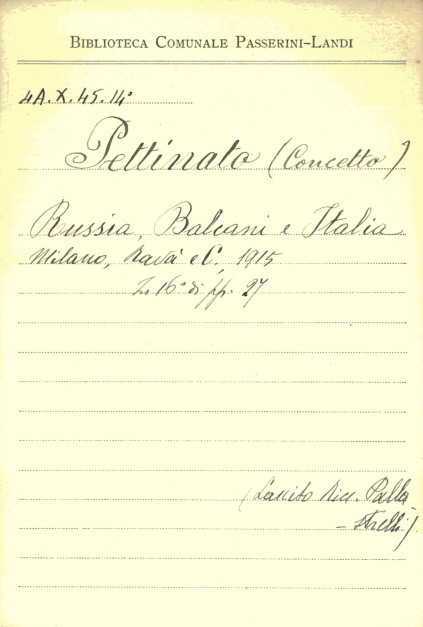 Biblioteca Comunale Passerini-Landi
4A.X.45.14°
Pettinato (Concetto)
Russia, Balcani e Italia
Milano, Ravà e C. 1915
In 16° di pp. 27
(Lascito Ricc. Palla
-strelli).